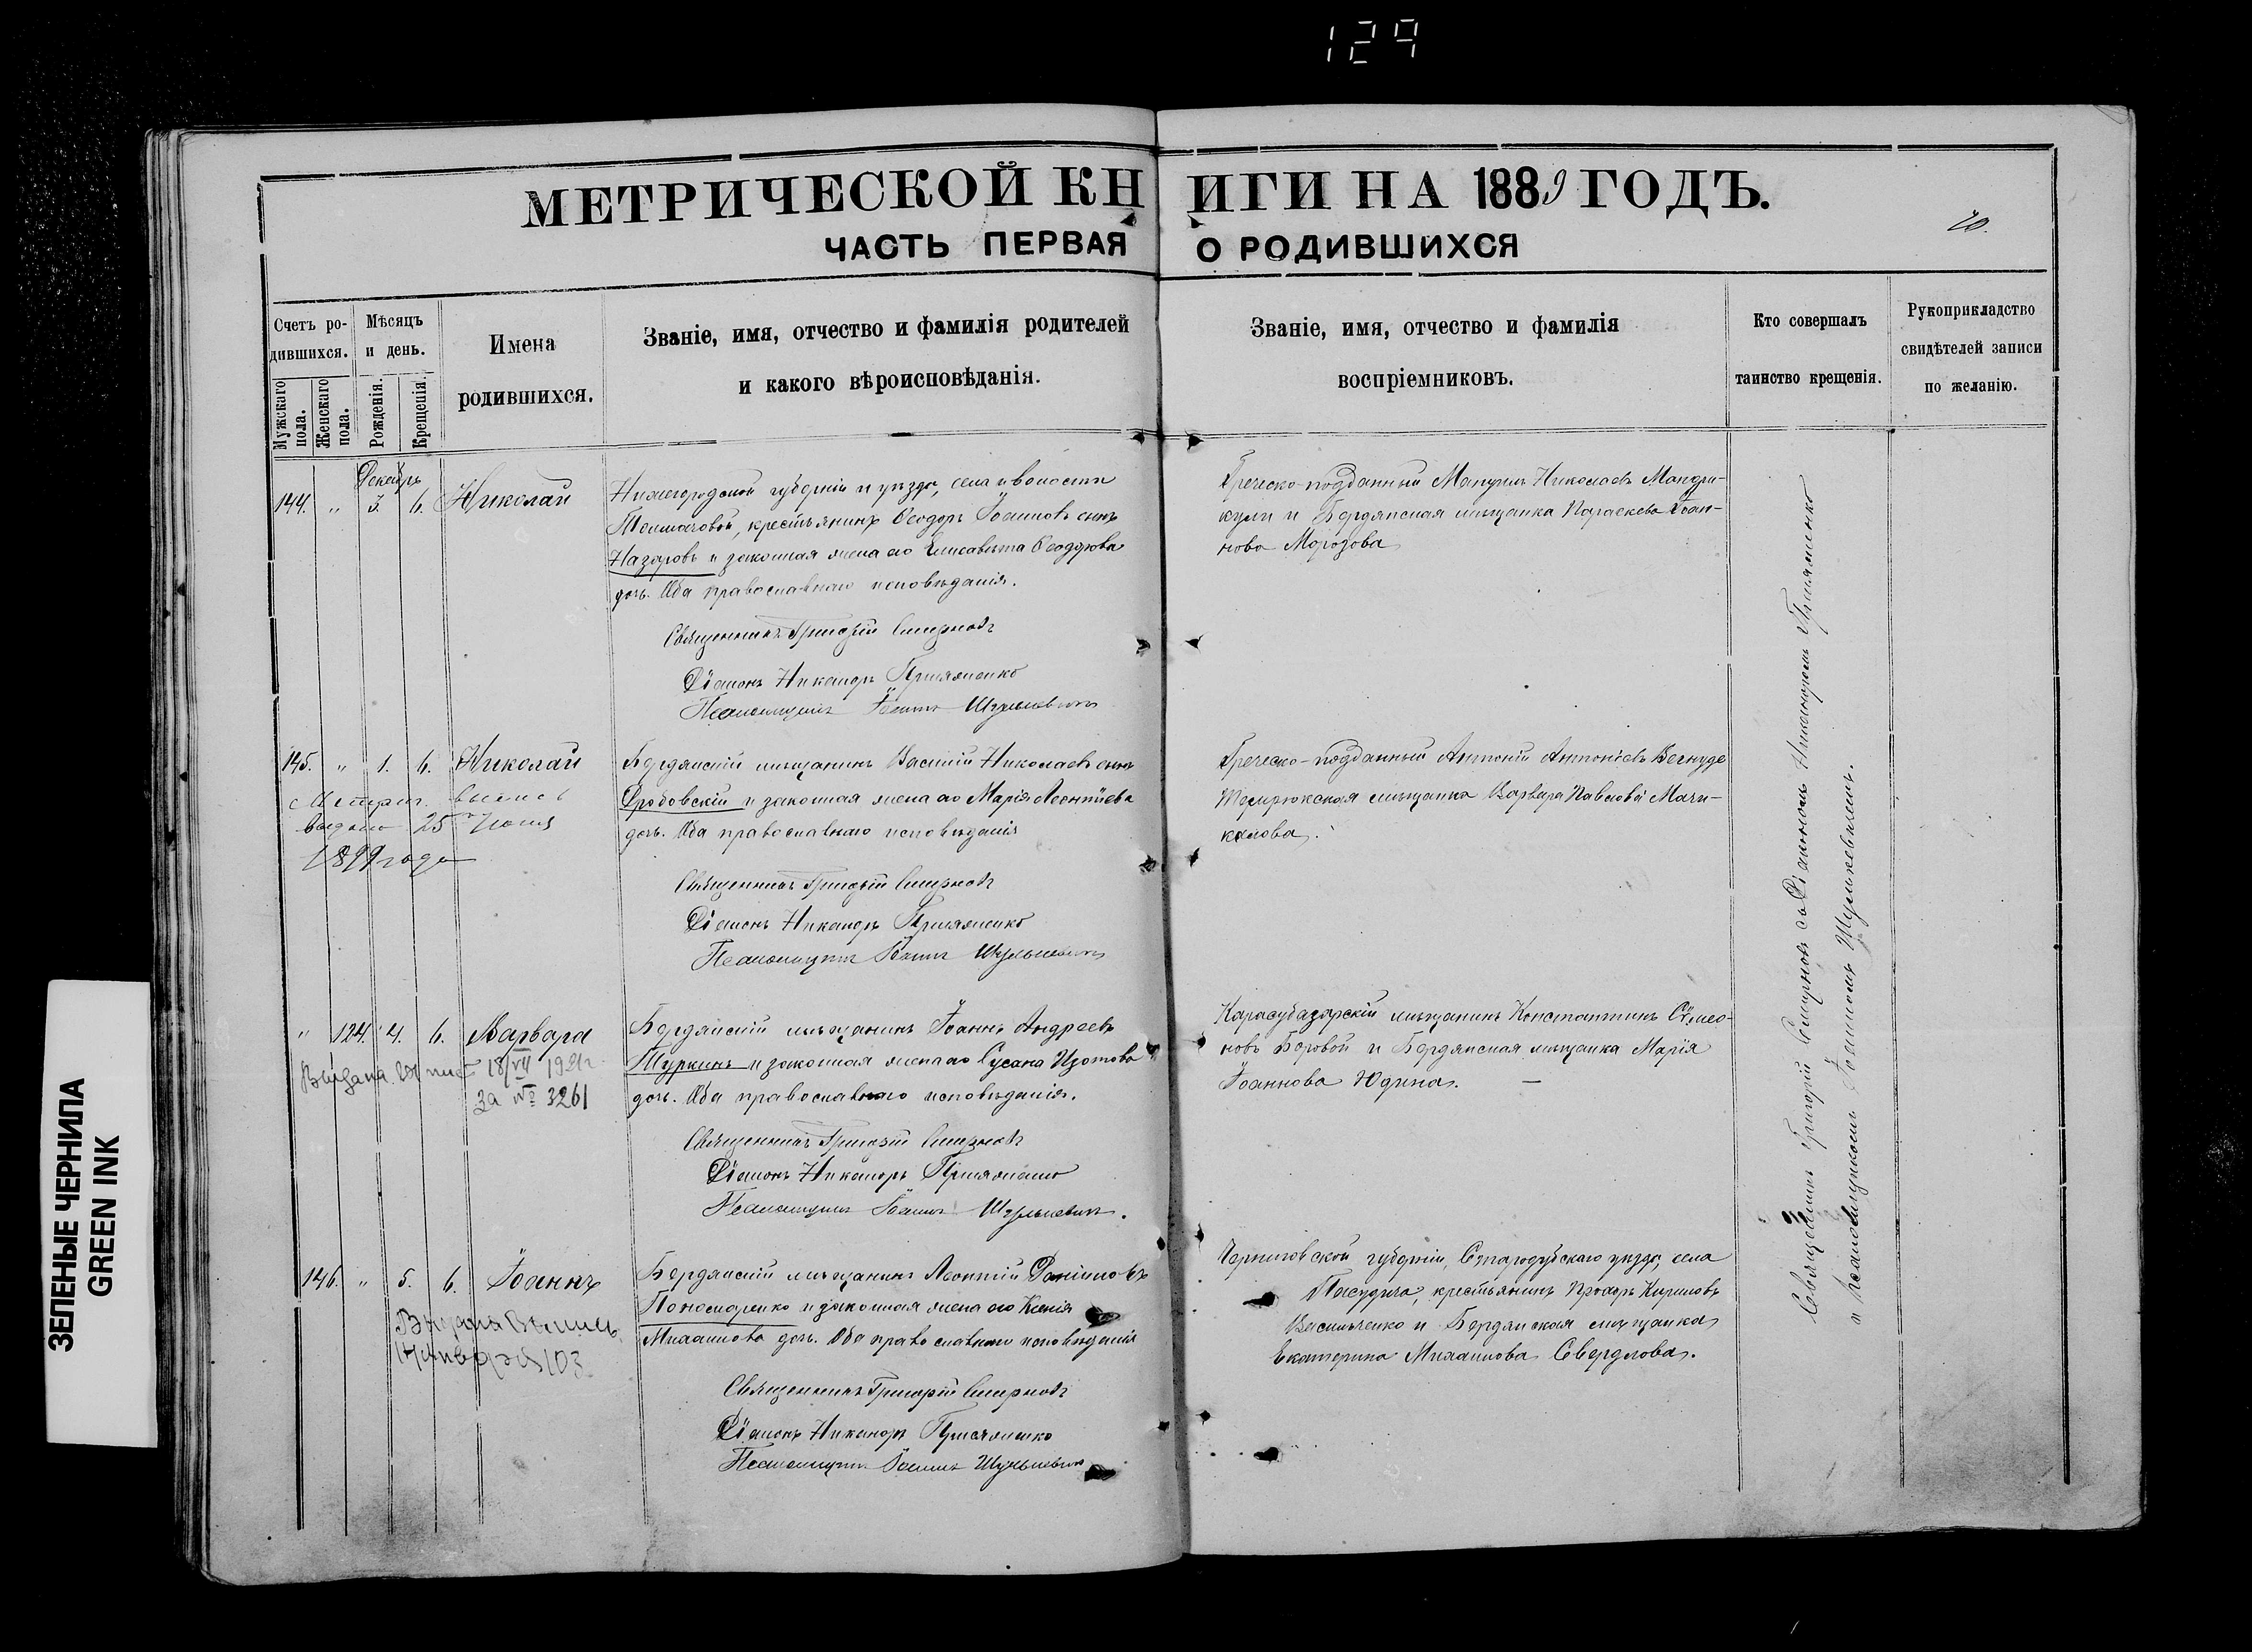 129
МЕТРИЧЕСКОЙ КНИГИ НА 1889 ГОДЪ.
ЧАСТЬ ПЕРВАЯ О РОДИВШИХСЯ
20.
Счетъ ро-
дившихся.
Мужскаго пола.
Женскаго пола.
Мѣсяцъ
и день.
Рожденія.
Крещенія.
Имена
родившихся.
Званіе, имя, отчество и фамилія родителей
и какого вѣроисповѣданія.
Званіе, имя, отчество и фамилія
воспріемниковъ.
Кто совершалъ
таинство крещенія.
Рукоприкладство
свидѣтелей записи
по желанію.
Декабрь
144. " 3. 6. Николай
Нижегородской губерніи и уѣзда, села и волости
крестьянинъ Ѳеодоръ Іоанновъ сынъ
Назаровъ и законная жена его Елисавета Ѳеодорова
дочь. Оба православнаго исповѣданія.
Священникъ Григорій Смирновъ
Діаконъ Никаноръ
Псаломщикъ Іоаннъ Шулькевичъ
Греческо-подданный Николаевъ
и Бердянская мѣщанка Параскева Іоан-
нова Морозова
145. " 1. 6. Николай
Метрич. выпись
выдана 25 Іюня
1899 года
Бердянскій мѣщанинъ Василій Николаевъ сынъ
Дробовскій и законная жена его Марія Леонтіева
дочь. Оба православнаго исповѣданія
Священникъ Григорій Смирновъ
Діаконъ Никаноръ
Псаломщикъ Іоаннъ Шулькевичъ
Греческо-подданный Антоній Антоніевъ
Темрюкская мѣщанка Варвара Павлова Мачи-
калова.
" 124. 4. 6. Варвара
Выдана 18/VII 1921г
за № 3261
Бердянскій мѣщанинъ Іоаннъ Андреевъ
Шуркинъ и законная жена его Сусана Изотова
дочь. Оба православнаго исповѣданія.
Священникъ Григорій Смирновъ
Діаконъ Никаноръ
Псаломщикъ Іоаннъ Шулькевичъ.
Карасубазарскій мѣщанинъ Константинъ Сѵмео-
новъ Боровой и Бердянская мѣщанка Марія
Іоаннова Юдина. —
146. " 5. 6. Іоаннъ
Выдана выпись
103
Бердянскій мѣщанинъ Леонтій Даніиловъ
Пономаренко и законная жена его Ксенія
Михаилова дочь. Оба православнаго исповѣданія
Священникъ Григорій Смирновъ
Діаконъ Никаноръ
Псаломщикъ Іоаннъ Шулькевичъ
Черниговской губерніи, Стародубскаго уѣзда, села
крестьянинъ Прохоръ Кириловъ
Васильченко и Бердянская мѣщанка
Екатерина Михаилова Свердлова.
Священникъ Григорій Смирновъ съ Діакономъ Никаноромъ
и Псаломщикомъ Іоанномъ Шулькевичемъ.
ЗЕЛЕНЫЕ ЧЕРНИЛА
GREEN INK